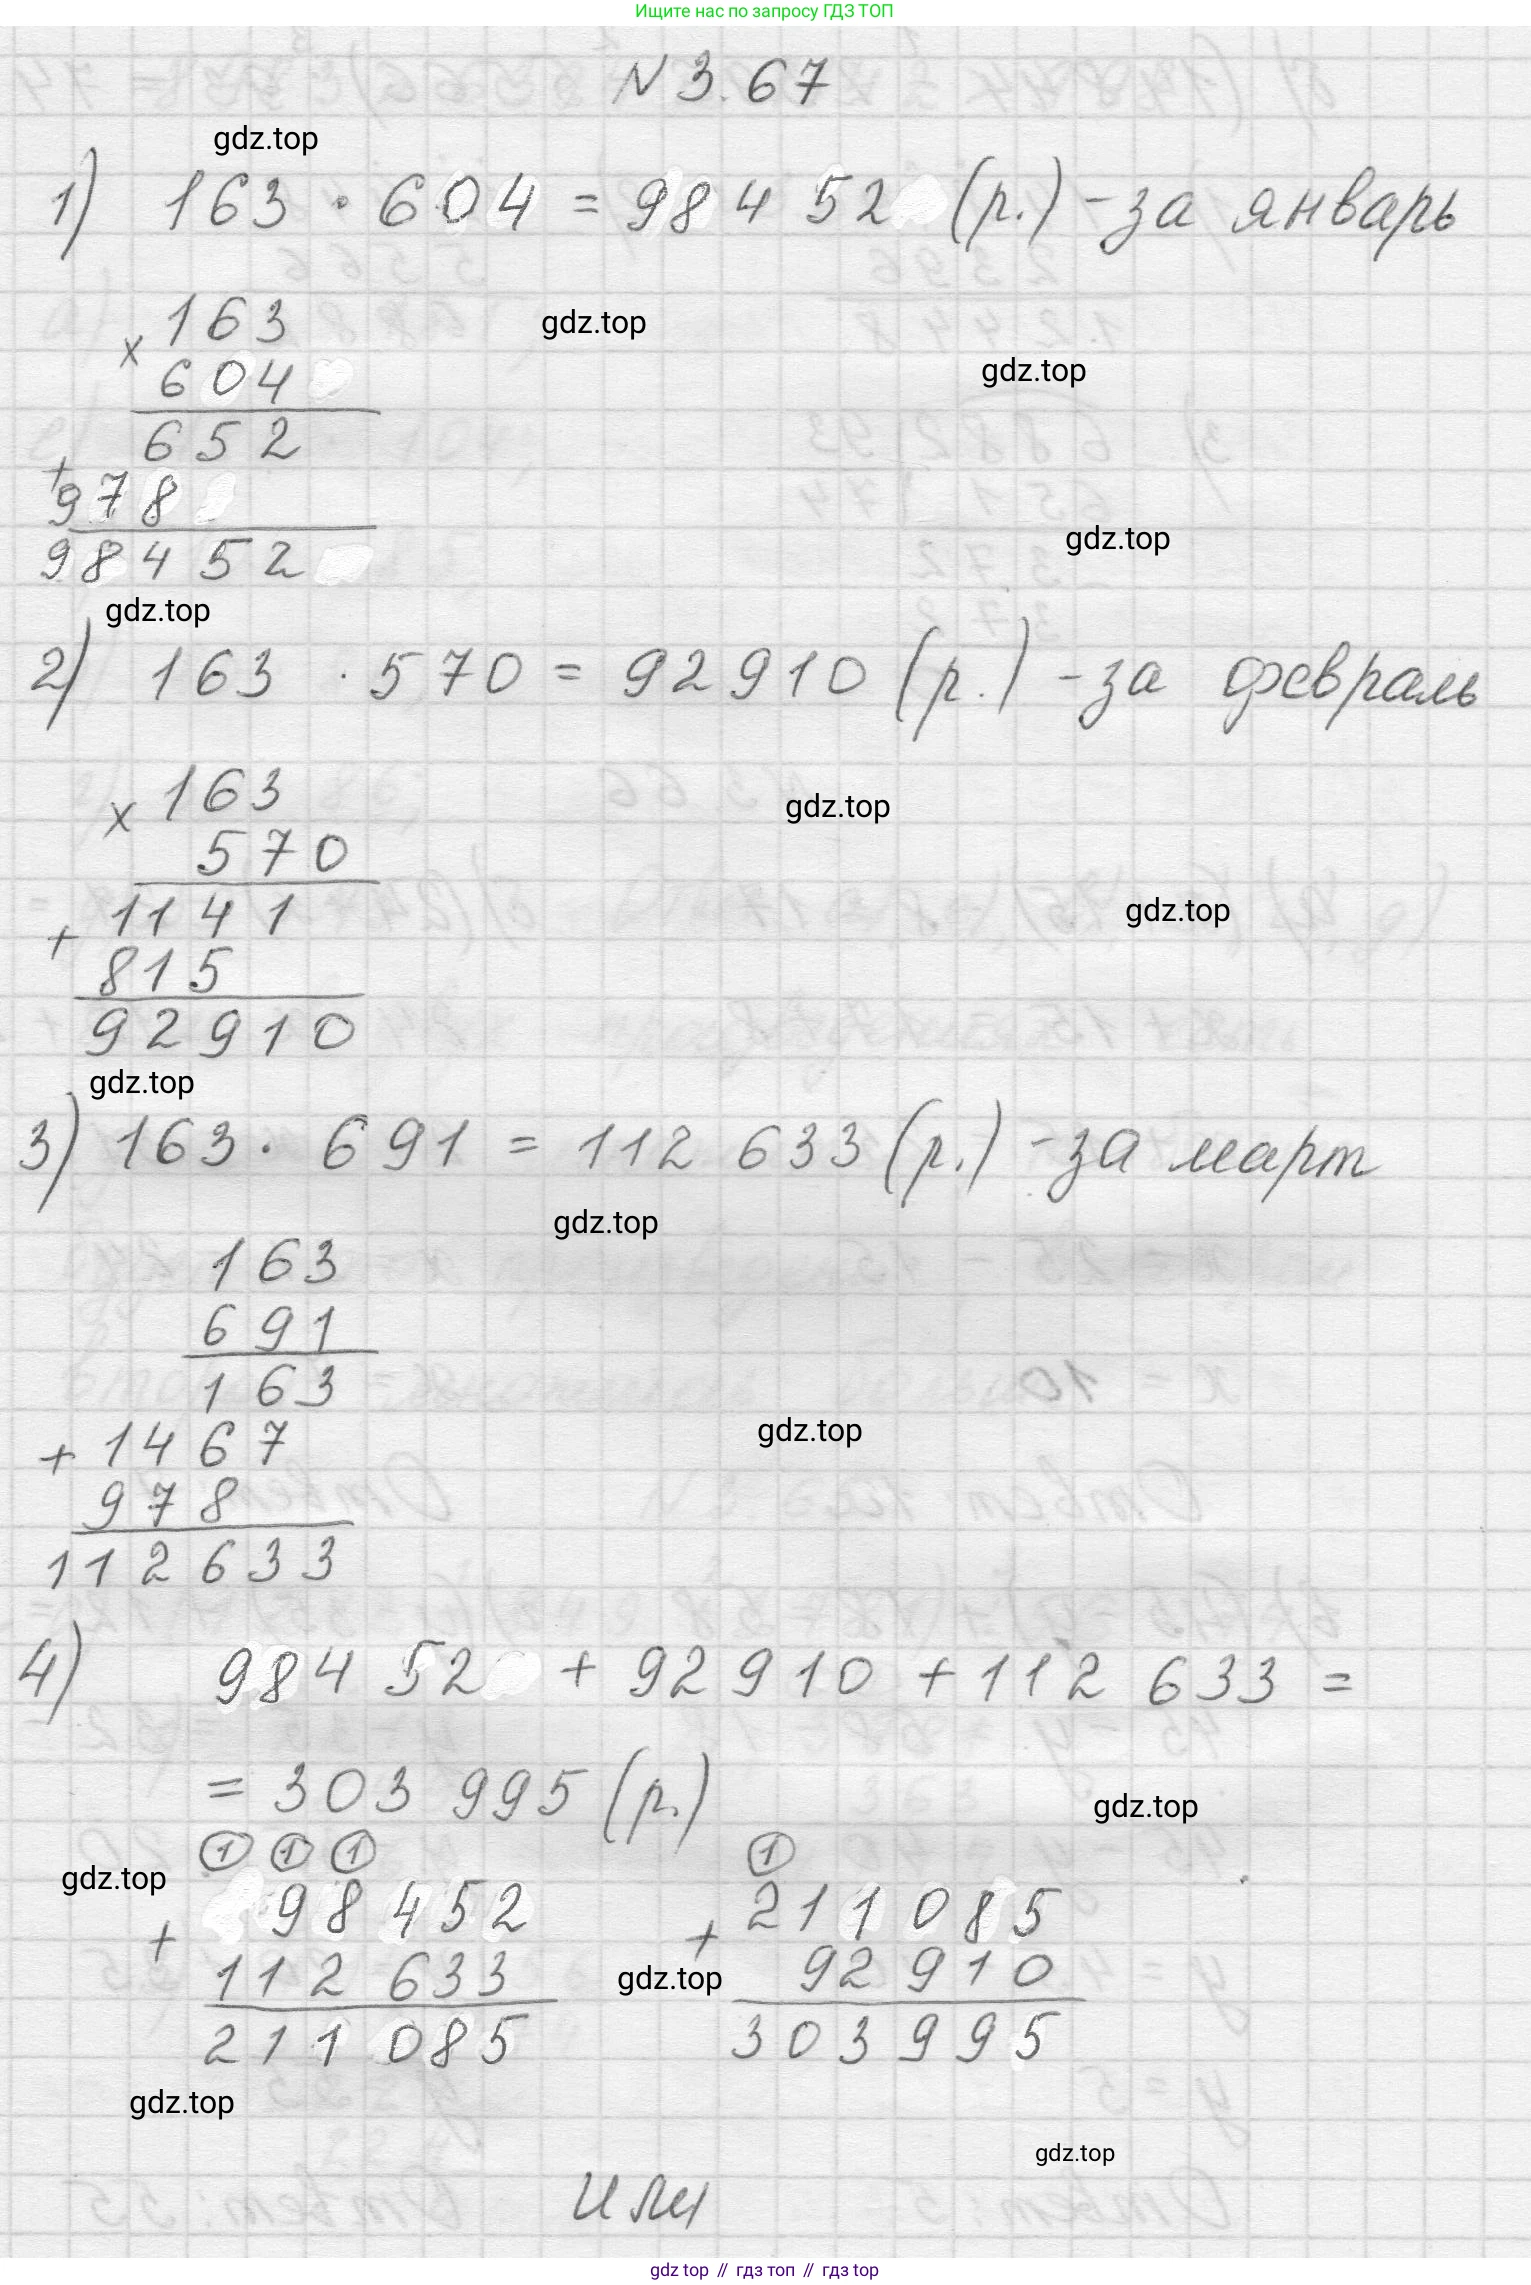 Ищите нас по запросу ГДЗ ТОП
N 3.67
gdz.top
1) 163 · 604 = 98 452 (р.) - за январь
163
gdz.top
×
604
gdz.top
652
+
978
gdz.top
98452
gdz.top
2) 163 · 570 = 92910 (р.) - за февраль
163
gdz.top
×
570
1141
gdz.top
+
815
92910
gdz.top
3) 163 · 691 = 112 633 (р.) - за март
gdz.top
163
691
163
+ 1467
gdz.top
978
112633
4) 98 452 + 92910 + 112 633 =
= 303 995 (р.)
gdz.top
1 1 1 1
gdz.top
98 452 211 085
+ +
112 633 gdz.top 92 910
211 085 303 995
gdz.top
gdz.top
или
gdz top // гдз топ // гдз top